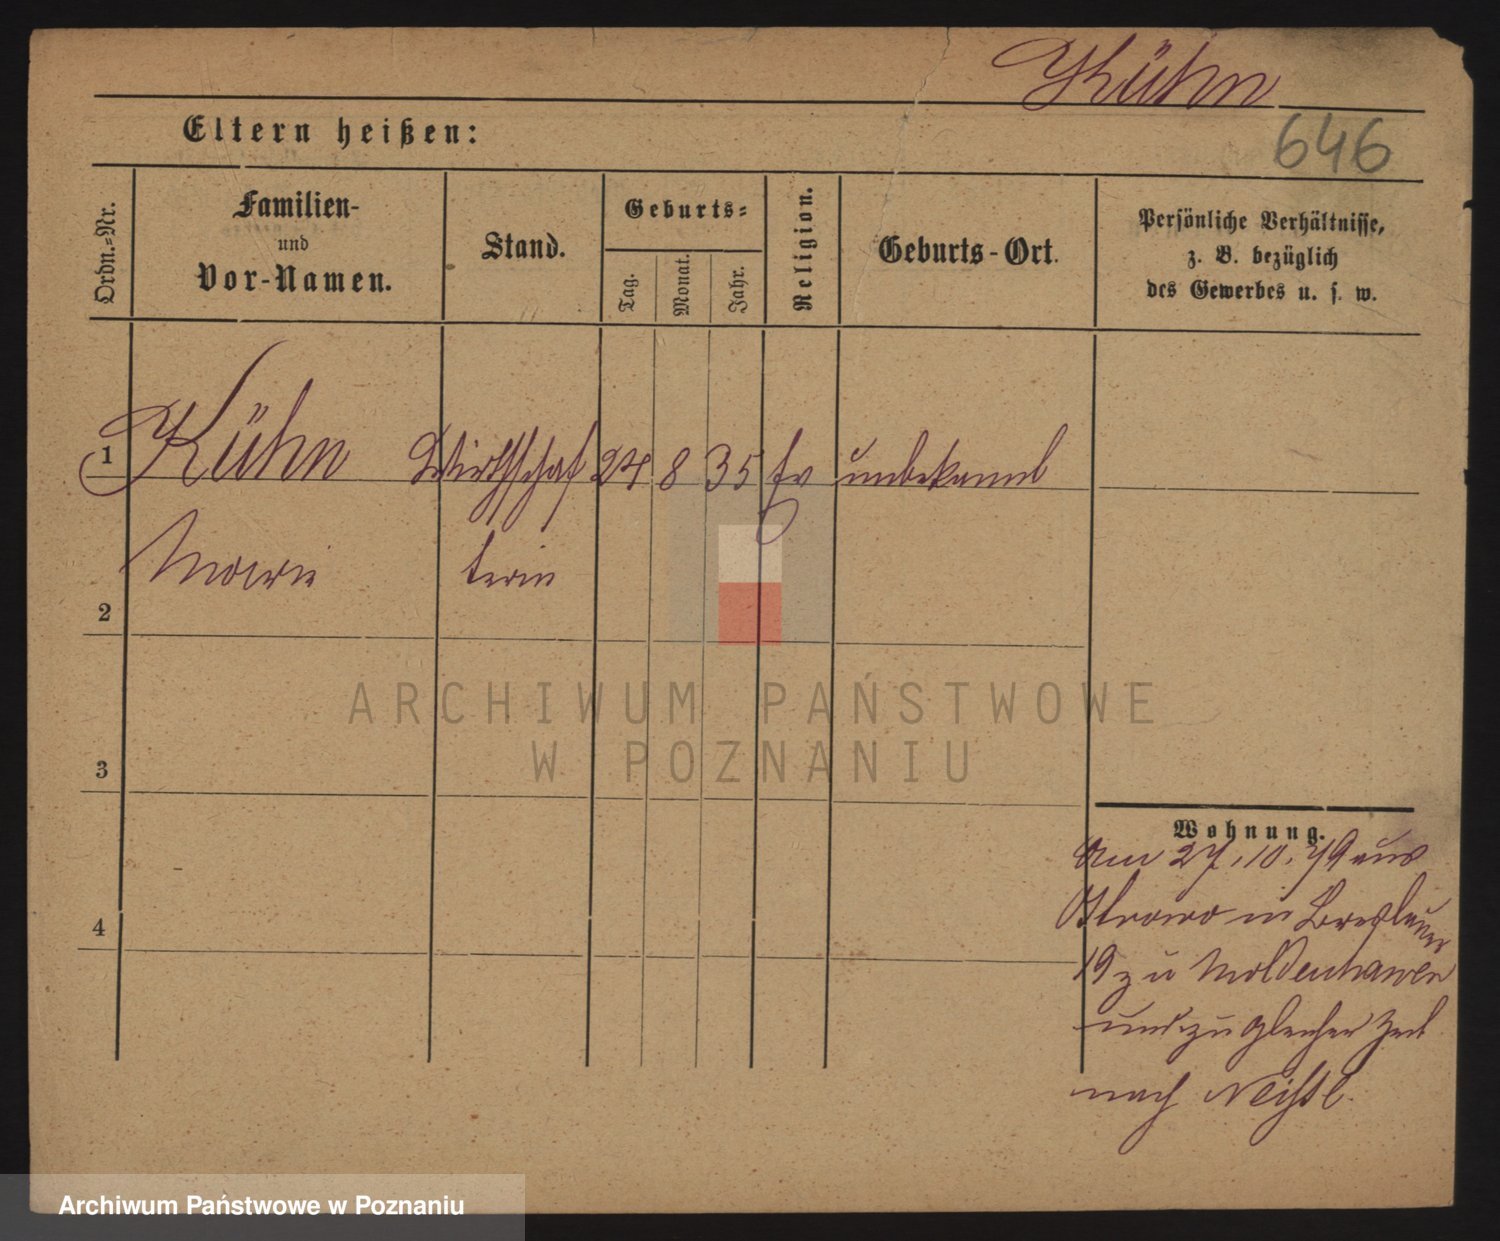 Kühn
646
Eltern heißen:
Ordn.=Nr.
Familien-
und
Vor-Namen.
Stand.
Geburts=
Tag.
Monat.
Jahr.
Religion.
Geburts-Ort.
Persönliche Verhältnisse,
z. B. bezüglich
des Gewerbes u. s. w.
1 Kühn Wirthschaf 24 8 35 Ev unbekannt
Marie terin
2
3
4
Wohnung.
Am 27.10.79 aus
Ostrowo in Breslauer
19 zu Moldenhawer
und zu gleicher Zeit
nach
ARCHIWUM PAŃSTWOWE
W POZNANIU
Archiwum Państwowe w Poznaniu